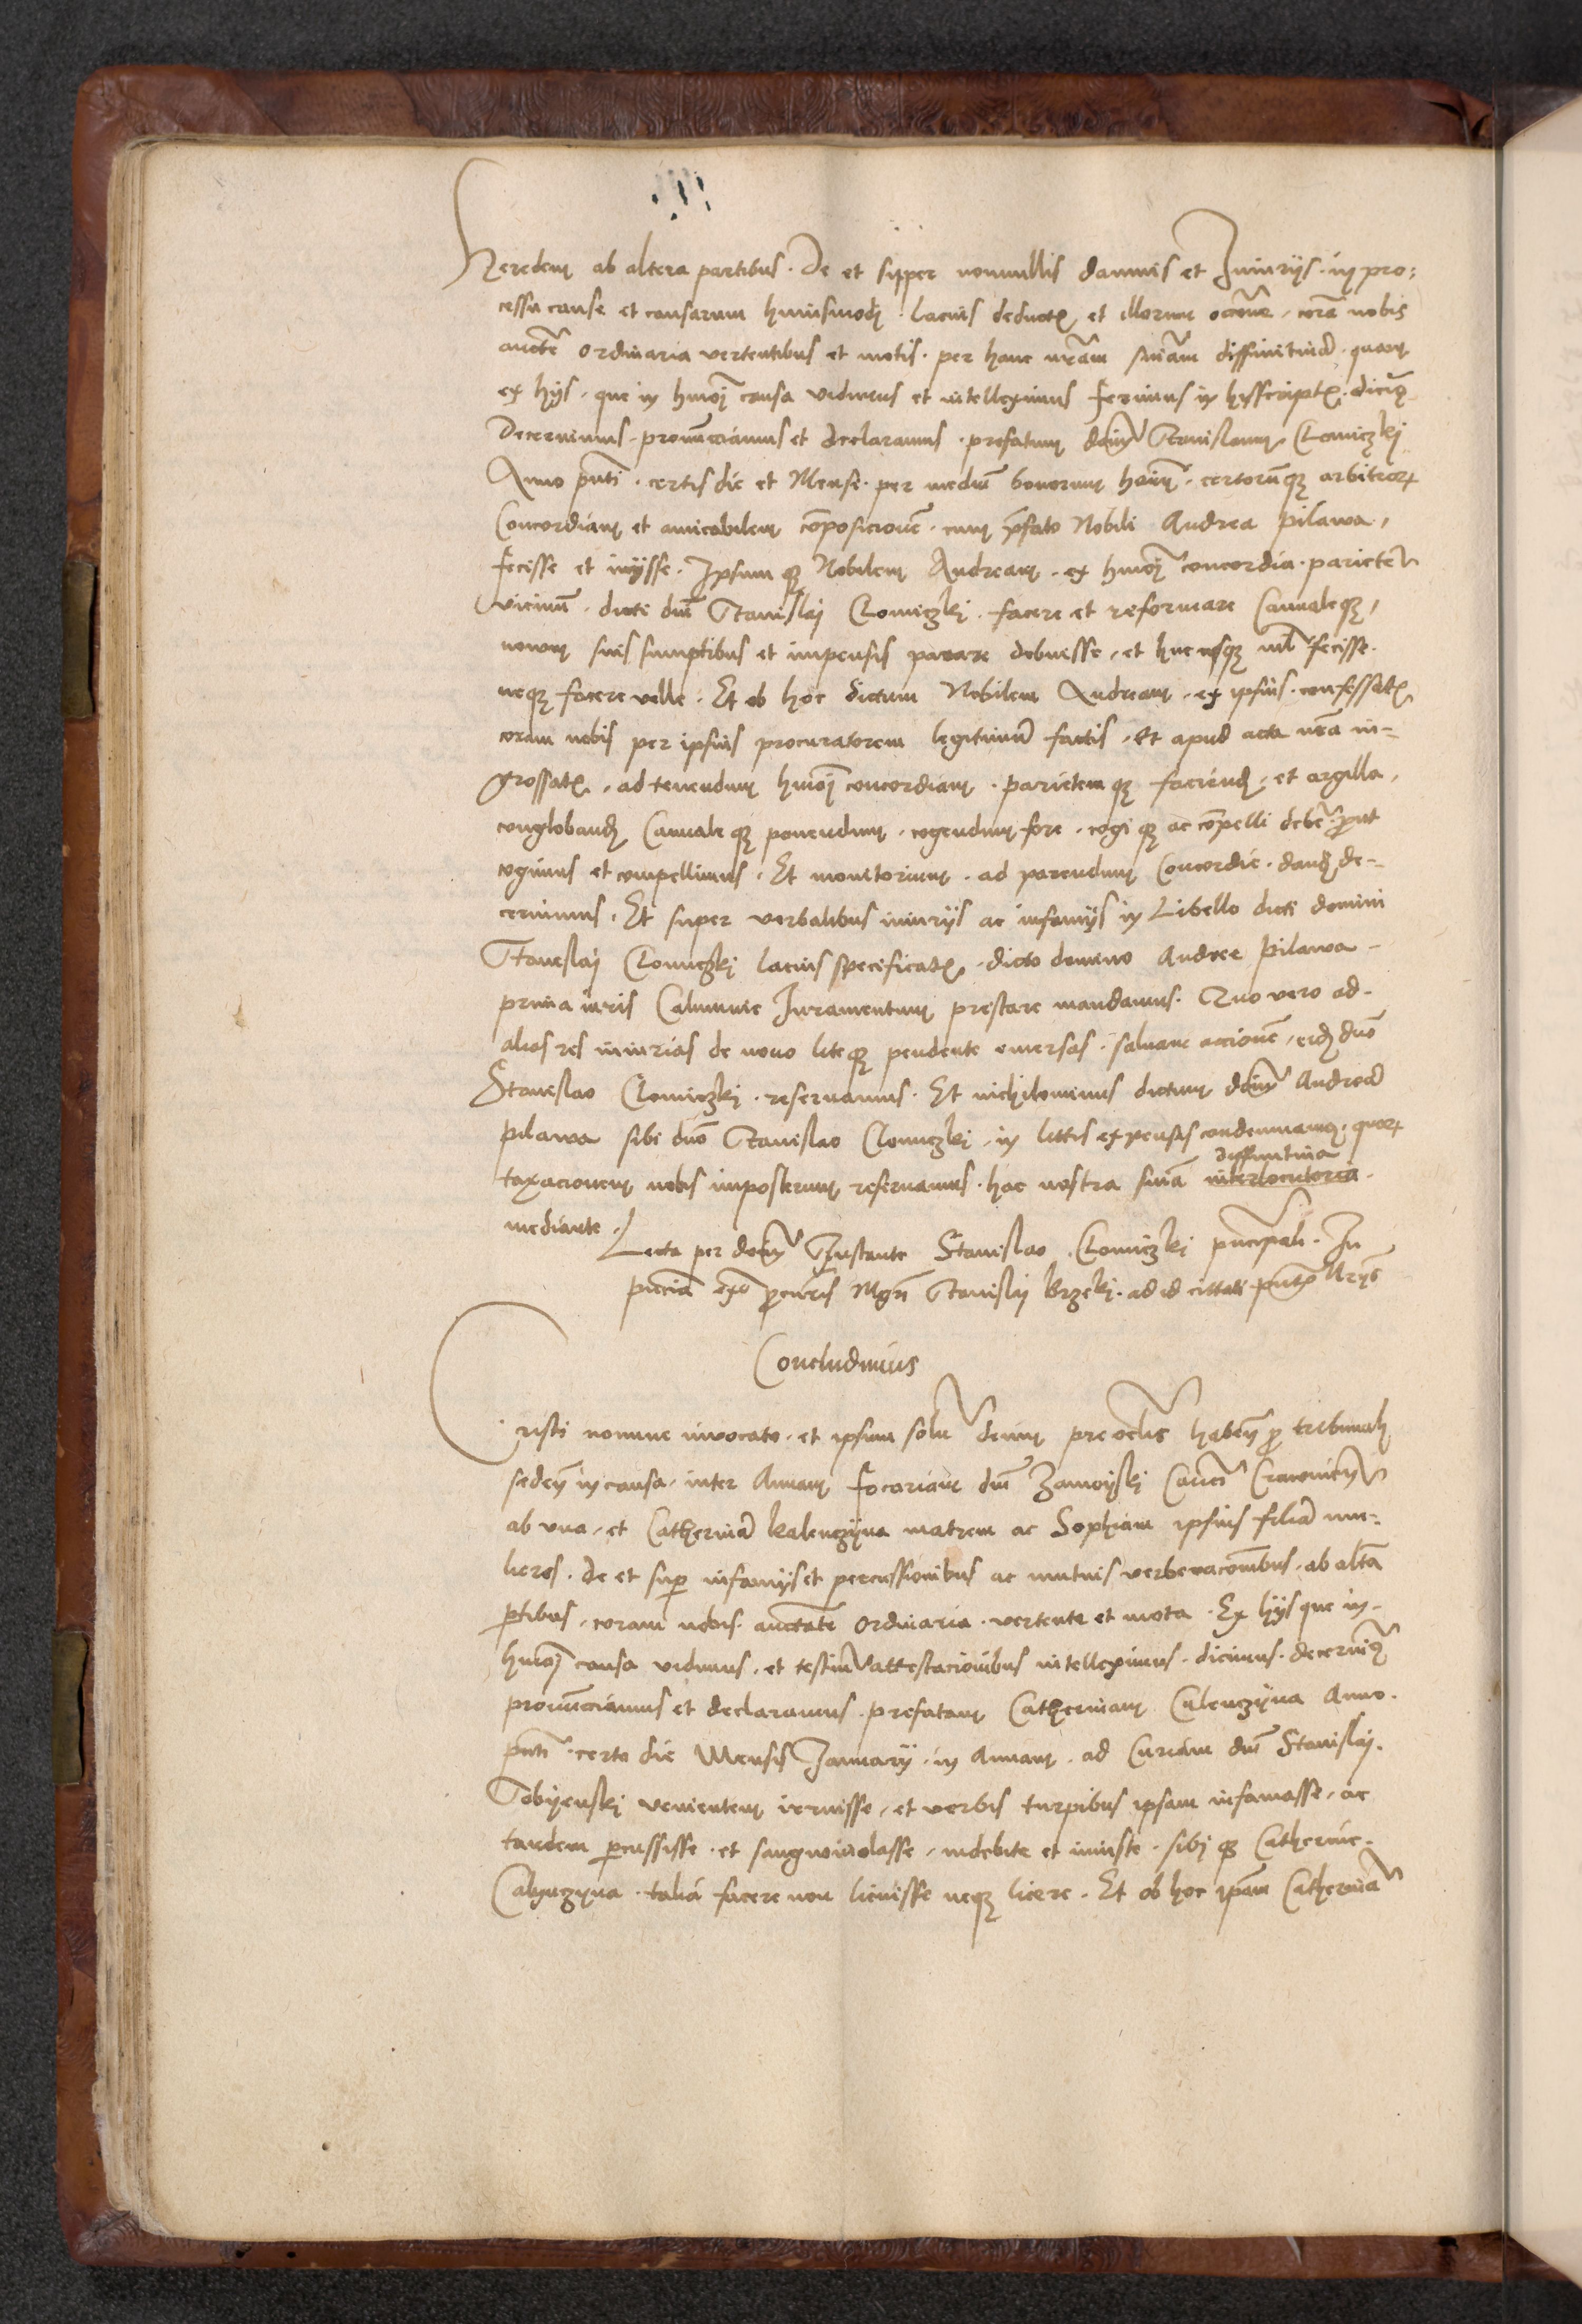 heredem ab altera partibus. De et super nonnullis damnis et Iniurijs. in pro:
cessu cause et causarum huiusmodi. lacius deductis et illorum occne. corã nobis
aucte ordinaria vertentibus et motis. per hanc nrãm sniãm diffinitiuã. quam
ex hijs. que in hmoi causa vidimus et intelleximus ferimus in hijsscriptis. dicimꝰ
Decernimus. pronũcciamus et declaramus. prefatum dnm Stanislaum. Clomiczkj
Anno pnti. certis die et Mense. per mediũ bonorum hoim. certorũqꝫ arbitrorꝝ
Concordiam et amicabilem cõposicionẽ. cum pfato Nobili Andrea pilawa,
fecisse et inijsse. Ipsumqꝫ Nobilem Andream. ex hmoi concordia. parietem
vicinũ. dicti dni Stanislaj Clomiczkj. facere et reformare Canaleqꝫ,
nouum suis sumptibus et impensis parare debuisse, et hucusqꝫ nil fecisse.
neqꝫ facere velle. Et ob hoc dictum Nobilem Andream. ex ipsius. confessatis
coram nobis per ipsius procuratorem legitimũ factis. et apud acta nrã in-
grossatis. ad tenendum hmoi concordiam. parietemqꝫ faciend. et argilla,
congloband Canaleqꝫ ponendum. cogendum fore. cogiqꝫ ac cõpelli debẽ. put
cogimus et compellimus. Et monitorium. ad parendum Concordie. dand de-
cernimus. Et super verbalibus iniurijs ac infamijs in Libello dicti domini
Stanislaj Clomiczkj lacius specificatis. dicto domino Andree pilawa -
prima iuris Calumnie Iuramentum prestare mandamus. Quo vero ad-
alias res iniurias de nouo liteqꝫ pendente emersas. saluam accionẽ, eid dno
Stanislao Clomiczkj. reseruamus. Et nichilominus dictum dnm Andreã
pilawa sibi dno Stanislao Clomiczkj. in littis expensis condemnamꝰ. quarꝝ
diffinitiua
taxacionem nobis imposterum reseruamus. hac nostra sniã interlocutoria.
mediante.
Lecta per dnm Instante Stanislao Clomiczkj principali. In
pncia procuris Mgri Stanislaj Brzekj. ad id citati pntibus
Concludimus
Cristi nomine inuocato. et ipsum solũ deum pre oclis habentes p tribunali
seden in causa. inter Annam focariam dni Zamoyskj Canci Cracouien
ab vna, et Catherinã kalenczyna matrem ac Sophiam ipsius filiã mu-
lieres. de et sup infamijs et percussionibus ac mutuis verberacõnibus. ab altã
ptibus. coram nobis. auctate ordinaria. vertente et mota. Ex hijs que in-
hmoi causa vidimus. et testium attestacionibus intelleximus. dicimus. decernimꝰ
pronũcciamus et declaramus. prefatam Catherinam Calenczyna Anno.
pnti. certo die Mensis Januarij. in Annam. ad Curiam dni Stanislaj.
Sobijenskj venientem irruisse, et verbis turpibus ipsam infamasse, ac
tandem pcussisse. et sangwinolasse, indebite et iniuste. sibiqꝫ Catherine.
Calynczyna. talia facere non licuisse neqꝫ licere. Et ob hoc ipam Catherinã